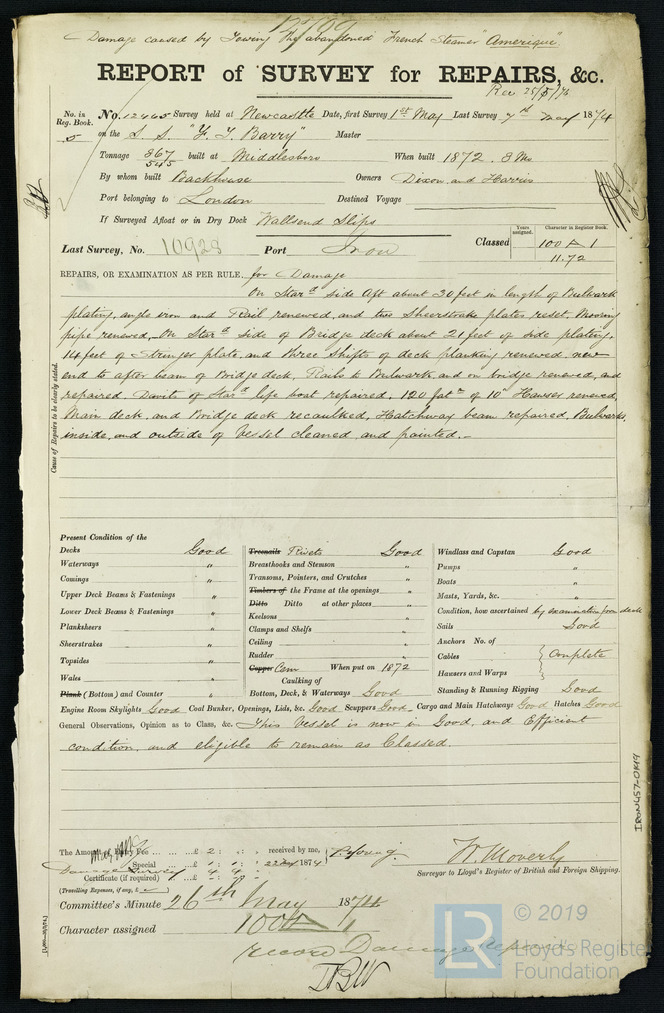 Damage caused by Towing the abandoned French Steamer "Amerique"
REPORT of SURVEY for REPAIRS, &c.
Rec 25/5/74
No. in Reg. Book. No. 12465 Survey held at Newcastle Date, first Survey 1st May Last Survey 7th May 1874
5 on the S.S. "F. T. Barry" Master
Tonnage 867 545 built at Middlesboro When built 1872. 8 Mo
By whom built Backhouse Owners Dixon and Harris
Port belonging to London Destined Voyage
If Surveyed Afloat or in Dry Dock Wallsend Slips
Years assigned. Character in Register Book.
Last Survey, No. 10928 Port Iron Classed 100 A 1
11.72
REPAIRS, OR EXAMINATION AS PER RULE, for Damage
Cause of Repairs to be clearly stated.
On Stard side Aft about 30 feet in length of Bulwark
plating, angle iron and Rail renewed, and two Sheerstrake plates reset, Mooring
pipe renewed, On Stard side of Bridge deck about 21 feet of side plating,
14 feet of Stringer plate, and three Shifts of deck planking renewed, new
end to after beam of Bridge deck, Rails to Bulwark and on bridge renewed, and
repaired, Davits of Stard life boat repaired, 120 fatms of 10" Hawser renewed,
Main deck, and Bridge deck recaulked, Hatchway beam repaired, Bulwarks,
inside, and outside of Vessel cleaned, and painted.-
Present Condition of the
Decks Good
Waterways "
Comings "
Upper Deck Beams & Fastenings "
Lower Deck Beams & Fastenings "
Planksheers "
Sheerstrakes "
Topsides "
Wales "
Plank (Bottom) and Counter "
Treenails Rivets Good
Breasthooks and Stemson "
Transoms, Pointers, and Crutches "
Timbers of the Frame at the openings "
Ditto Ditto at other places "
Keelsons "
Clamps and Shelfs "
Ceiling "
Rudder "
Copper Cem When put on 1872
Caulking of
Bottom, Deck, & Waterways Good
Windlass and Capstan Good
Pumps "
Boats "
Masts, Yards, &c. "
Condition, how ascertained by examination from deck
Sails Good
Anchors No. of
Cables } Complete
Hawsers and Warps
Standing & Running Rigging Good
Engine Room Skylights Good Coal Bunker, Openings, Lids, &c. Good Scuppers Good Cargo and Main Hatchways Good Hatches Good
General Observations, Opinion as to Class, &c. This Vessel is now in Good, and Efficient
condition, and eligible to remain as Classed.
IRON457-0419
The Amount of Entry Fee £ 2 : : received by me,
Special £ : : 1874
Damage Survey 4 4
Certificate (if required) £ : :
(Travelling Expenses, if any, £ )
W. Moverly
Surveyor to Lloyd's Register of British and Foreign Shipping.
Committee's Minute 26th May 1874
Character assigned 100 A 1
record Damage repaired
© 2019
LR Lloyd's Register
Foundation